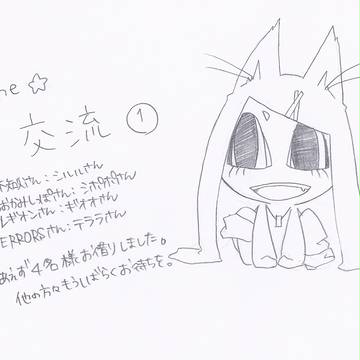 ne ☆
交流 ①
不知火さん：シルルさん
おかみしぽさん：シホウホウさん
レギオンさん：ギオオさん
ERRORSさん：テララさん
あえず4名様お借りしました。
他の方々もうしばらくお待ちを。